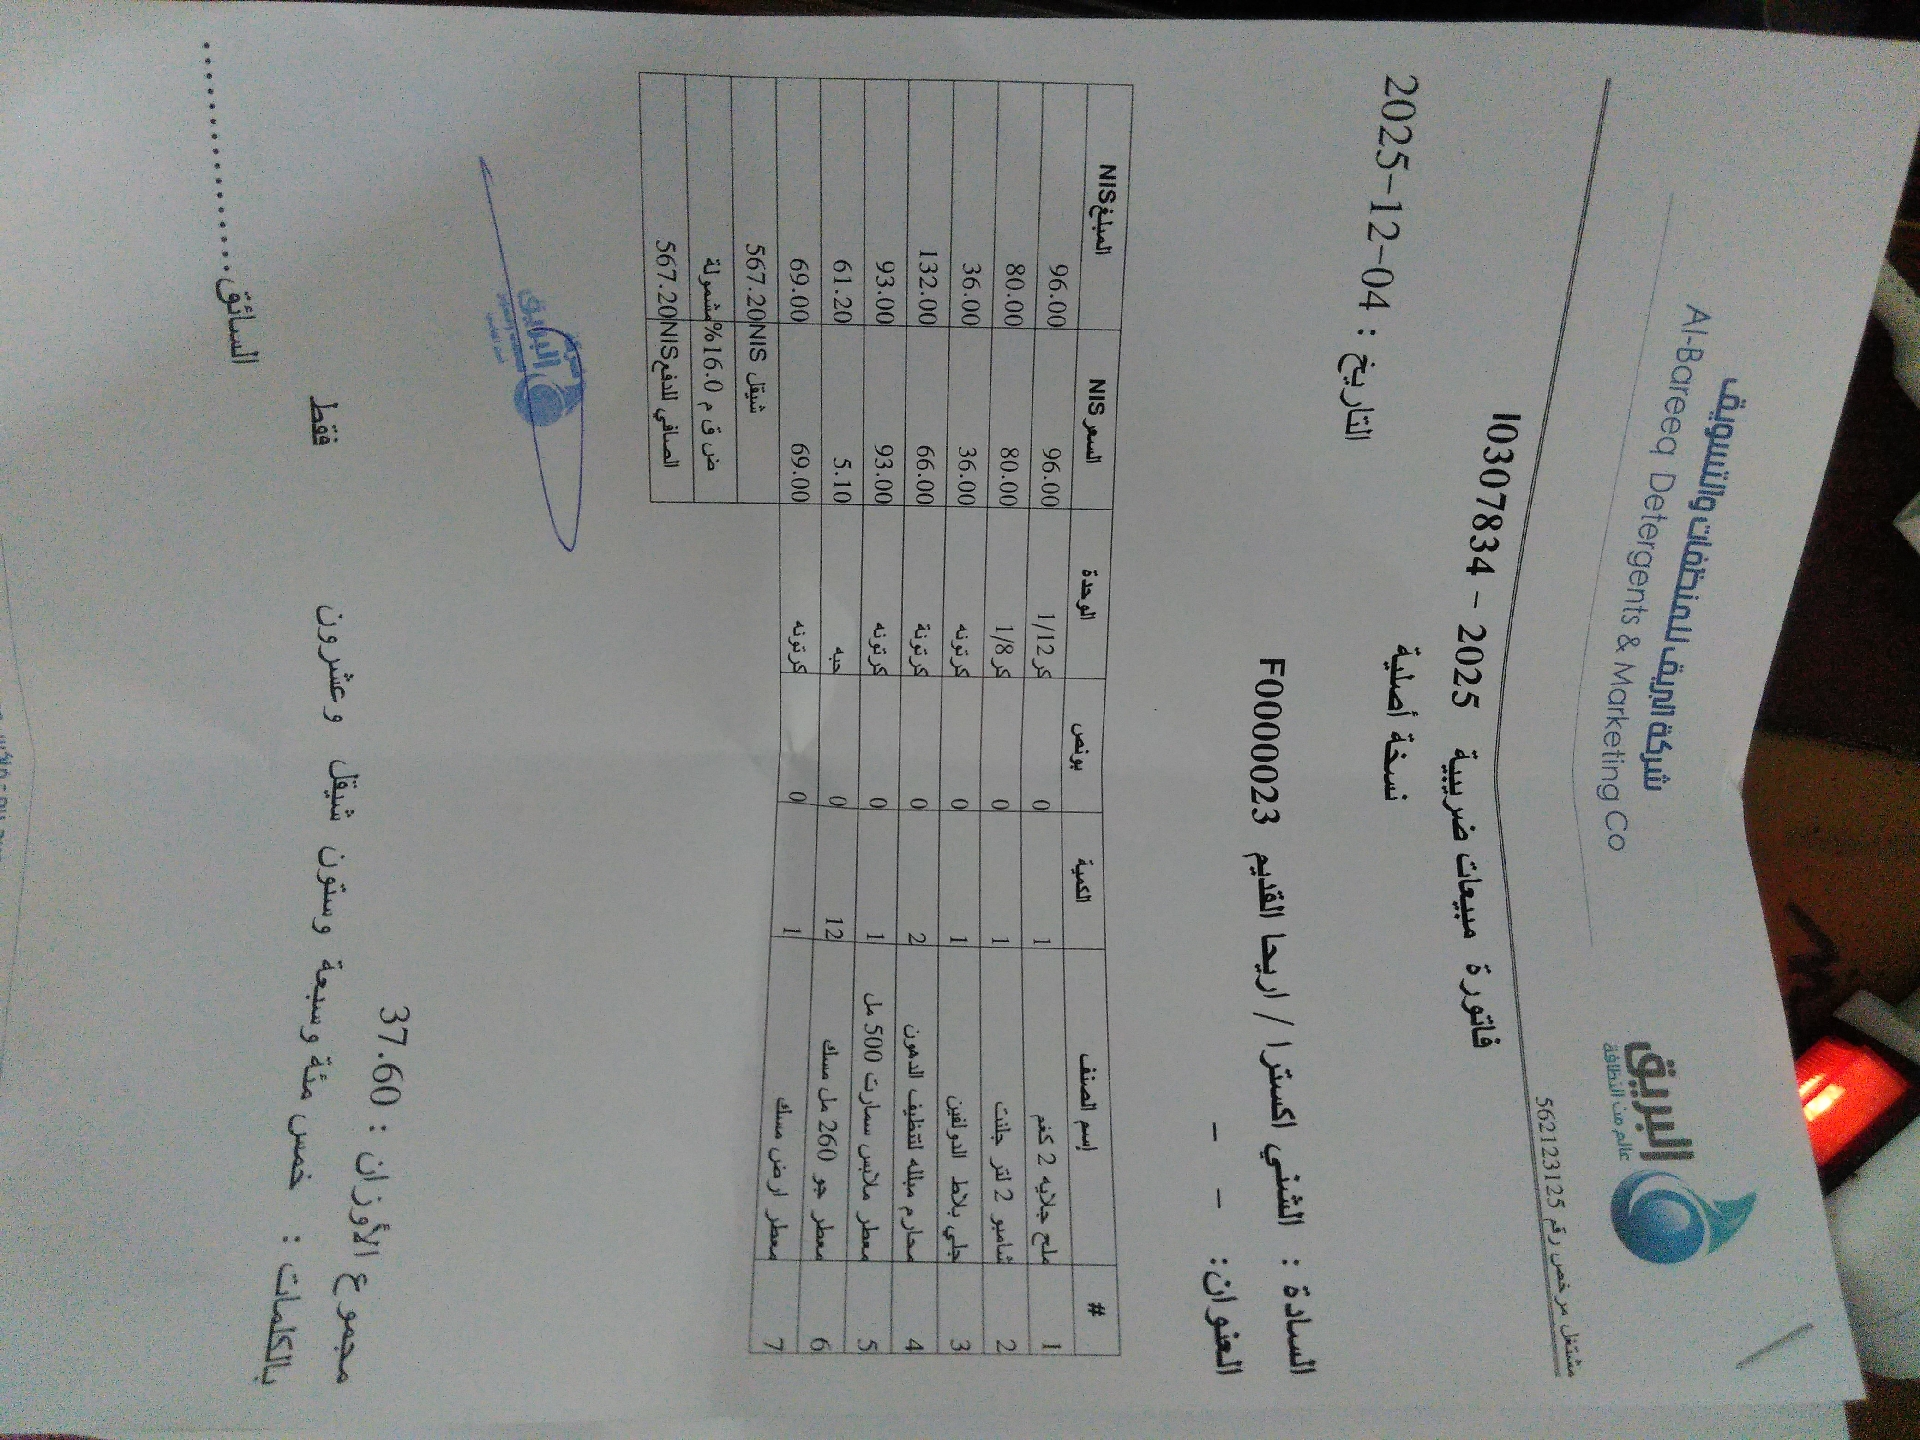 شركة البريق للمنظفات والتسويق
Al-Bareeq Detergents & Marketing Co
البريق
عالم من النظافة
مشتغل مرخص رقم 562123125
فاتورة مبيعات ضريبية 2025 - I0307834
نسخة أصلية
التاريخ : 2025-12-04
السادة : الشني اكسترا / اريحا القديم F0000023
العنوان: - -
# إسم الصنف الكمية بونص الوحدة السعر NIS المبلغ NIS
1 ملح جلايه 2 كغم 1 0 كر 1/12 96.00 96.00
2 شامبو 2 لتر جلنت 1 0 كر 1/8 80.00 80.00
3 جلي بلاط الدولفين 1 0 كرتونه 36.00 36.00
4 محارم مبلله لتنظيف الدهون 2 0 كرتونة 66.00 132.00
5 معطر ملابس سمارت 500 مل 1 0 كرتونه 93.00 93.00
6 معطر جو 260 مل مسك 12 0 حبه 5.10 61.20
7 معطر ارض مسك 1 0 كرتونه 69.00 69.00
شيقل NIS 567.20
ض ق م 16.0% مشمولة
الصافي للدفع NIS 567.20
البريق
مجموع الأوزان : 37.60
بالكلمات : خمس مئة وسبعة وستون شيقل وعشرون فقط
السائق..................